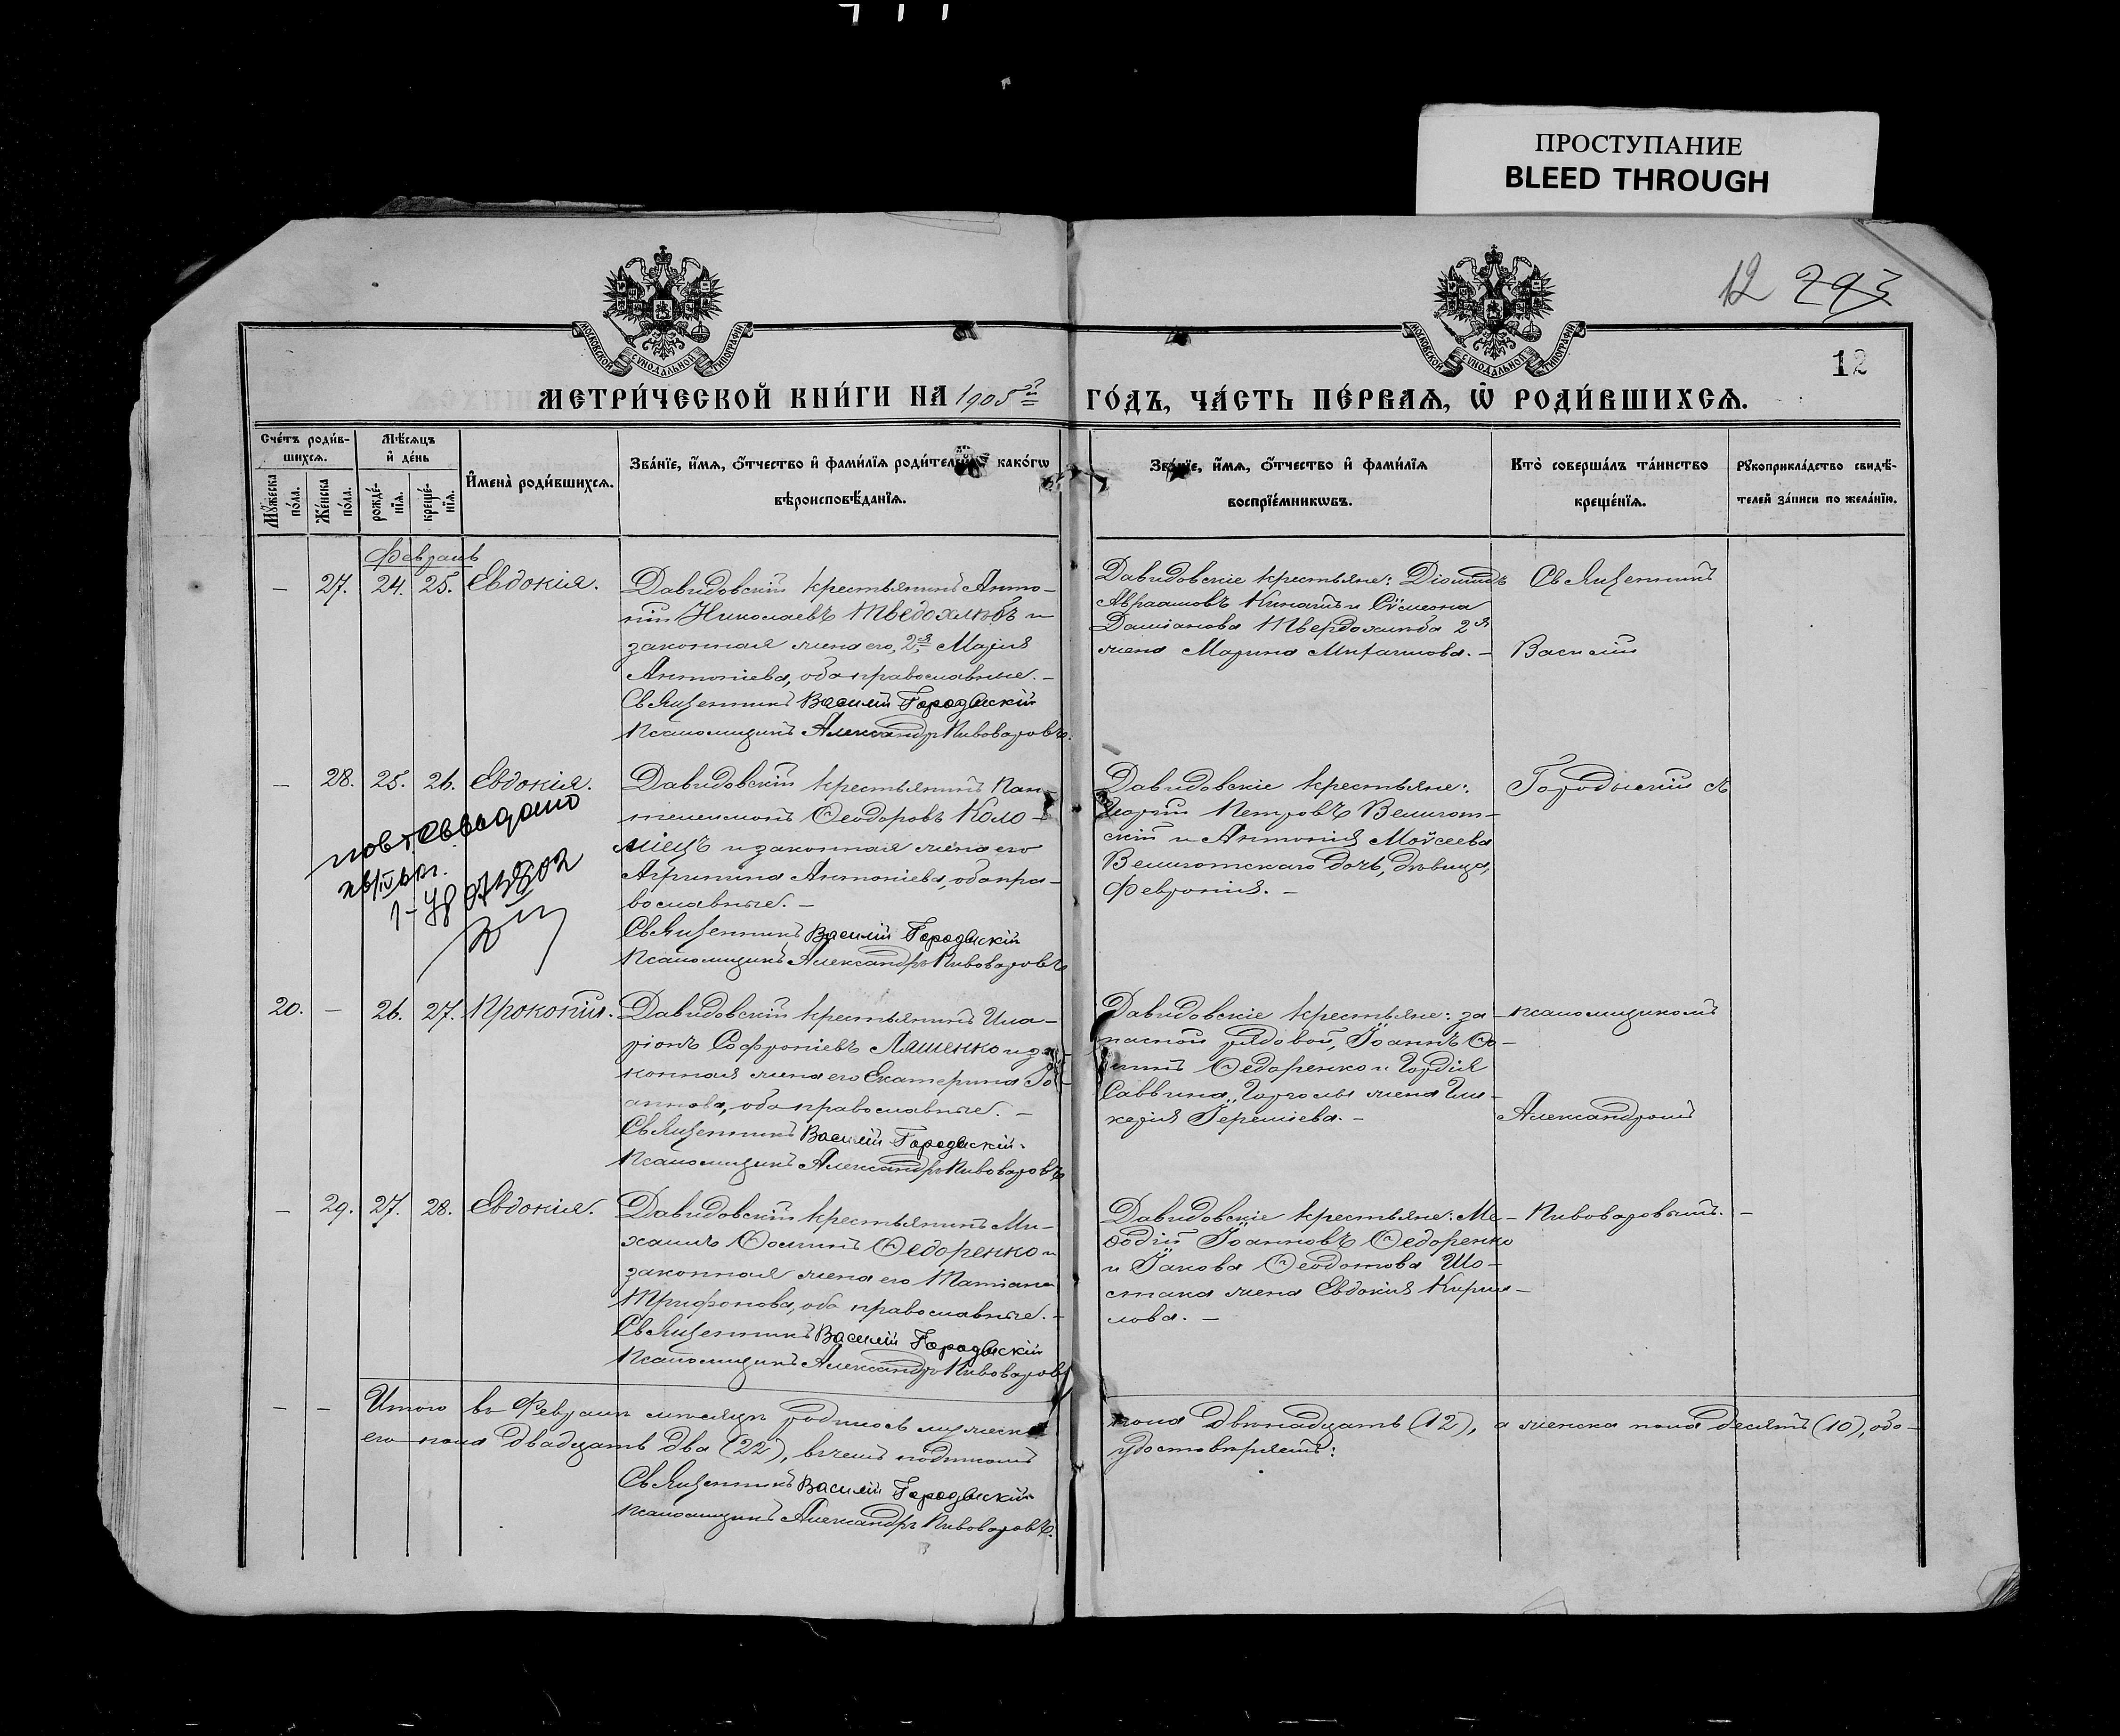 ПРОСТУПАНИЕ
BLEED THROUGH
12 293
12
МОСКОВСКОЙ СѴНОДАЛЬНОЙ ТИПОГРАФІИ
МОСКОВСКОЙ СѴНОДАЛЬНОЙ ТИПОГРАФІИ
МЕТРИ́ЧЕСКОЙ КНИ́ГИ НА 1905й ГО́ДЪ, ЧА́СТЬ ПЕ́РВАѦ, Ѡ҃ РОДИ́ВШИХСѦ.
Сче́тъ роди́в-
шихсѧ.
Мѣ́сѧцъ
и҆ де́нь
Мꙋ́жеска
по́ла.
Же́нска
по́ла.
рожде́-
нїѧ.
креще́-
нїѧ.
И҆мена̀ роди́вшихсѧ.
Зва́нїе, и҆́мѧ, ѻ҆́тчество и҆ фами́лїѧ роди́телей како́гѡ
вѣроисповѣ́данїѧ.
Зва́нїе, и҆́мѧ, ѻ҆́тчество и҆ фами́лїѧ
воспрїе́мникѡвъ.
Кто̀ соверша́лъ та́инство
креще́нїѧ.
Рꙋкоприкла́дство свидѣ́-
телей за́писи по жела́нїю.
Февраль
— 27. 24. 25. Евдокія.
Давидовскій крестьянинъ Анто-
ній Николаевъ Тведохлѣбъ и
законная жена его, 2я Марія
Антоніева, оба православные. –
Священникъ Василій Городыскій
Псаломщикъ Александръ Пивоваровъ.
Давидовскіе крестьяне: Діомидъ
Авраамовъ Кинашъ и Сѵмеона
Даміанова Твердохлѣба 2я
жена Марина Михаилова. –
Священникъ
Василій
— 28. 25. 26. Евдокія.
Давидовскій крестьянинъ Пан-
телеимонъ Ѳеодоровъ Коло-
міецъ и законная жена его
Агрипина Антоніева, оба пра-
вославные. –
Священникъ Василій Городыскій
Псаломщикъ Александръ Пивоваровъ
Давидовскіе крестьяне:
Петровъ Велигот-
скій и Антонія Моѵсеева
Велиготскаго дочь, дѣвица,
Февронія. –
Городыскій съ
повт. св выдано
20. — 26. 27. Прокопій.
Давидовскій крестьянинъ Ила-
ріонъ Софроніевъ Ляшенко и за-
конная жена его Екатерина Іо-
аннова, оба православные. –
Священникъ Василій Городыскій.
Псаломщикъ Александръ Пивоваровъ
Давидовскіе крестьяне: за-
пасной рядовой, Іоаннъ Ѳо-
минъ Ѳедоренко и Гордія
Саввина жена Гли-
керія Іереміева. –
псаломщикомъ
Александромъ
— 29. 27. 28. Евдокія.
Давидовскій крестьянинъ Ми-
хаилъ Ѳоминъ Ѳедоренко и
законная жена его Татіана
Трифонова, оба православные. –
Священникъ Василій Городыскій
Псаломщикъ Александръ Пивоваровъ
Давидовскіе крестьяне: Ме-
ѳодій Іоанновъ Ѳедоренко
и Іакова Ѳеодотова Шо-
стака жена Евдокія Кирил-
лова. –
Пивоваровымъ. –
— — Итого въ Февралѣ мѣсяцѣ родилось мужеска
пола двѣнадцать (12), а женска пола десять (10), обо-
его пола двадцать два (22), въ чемъ подписомъ
удостовѣряемъ:
Священникъ Василій Городыскій
Псаломщикъ Александръ Пивоваровъ.